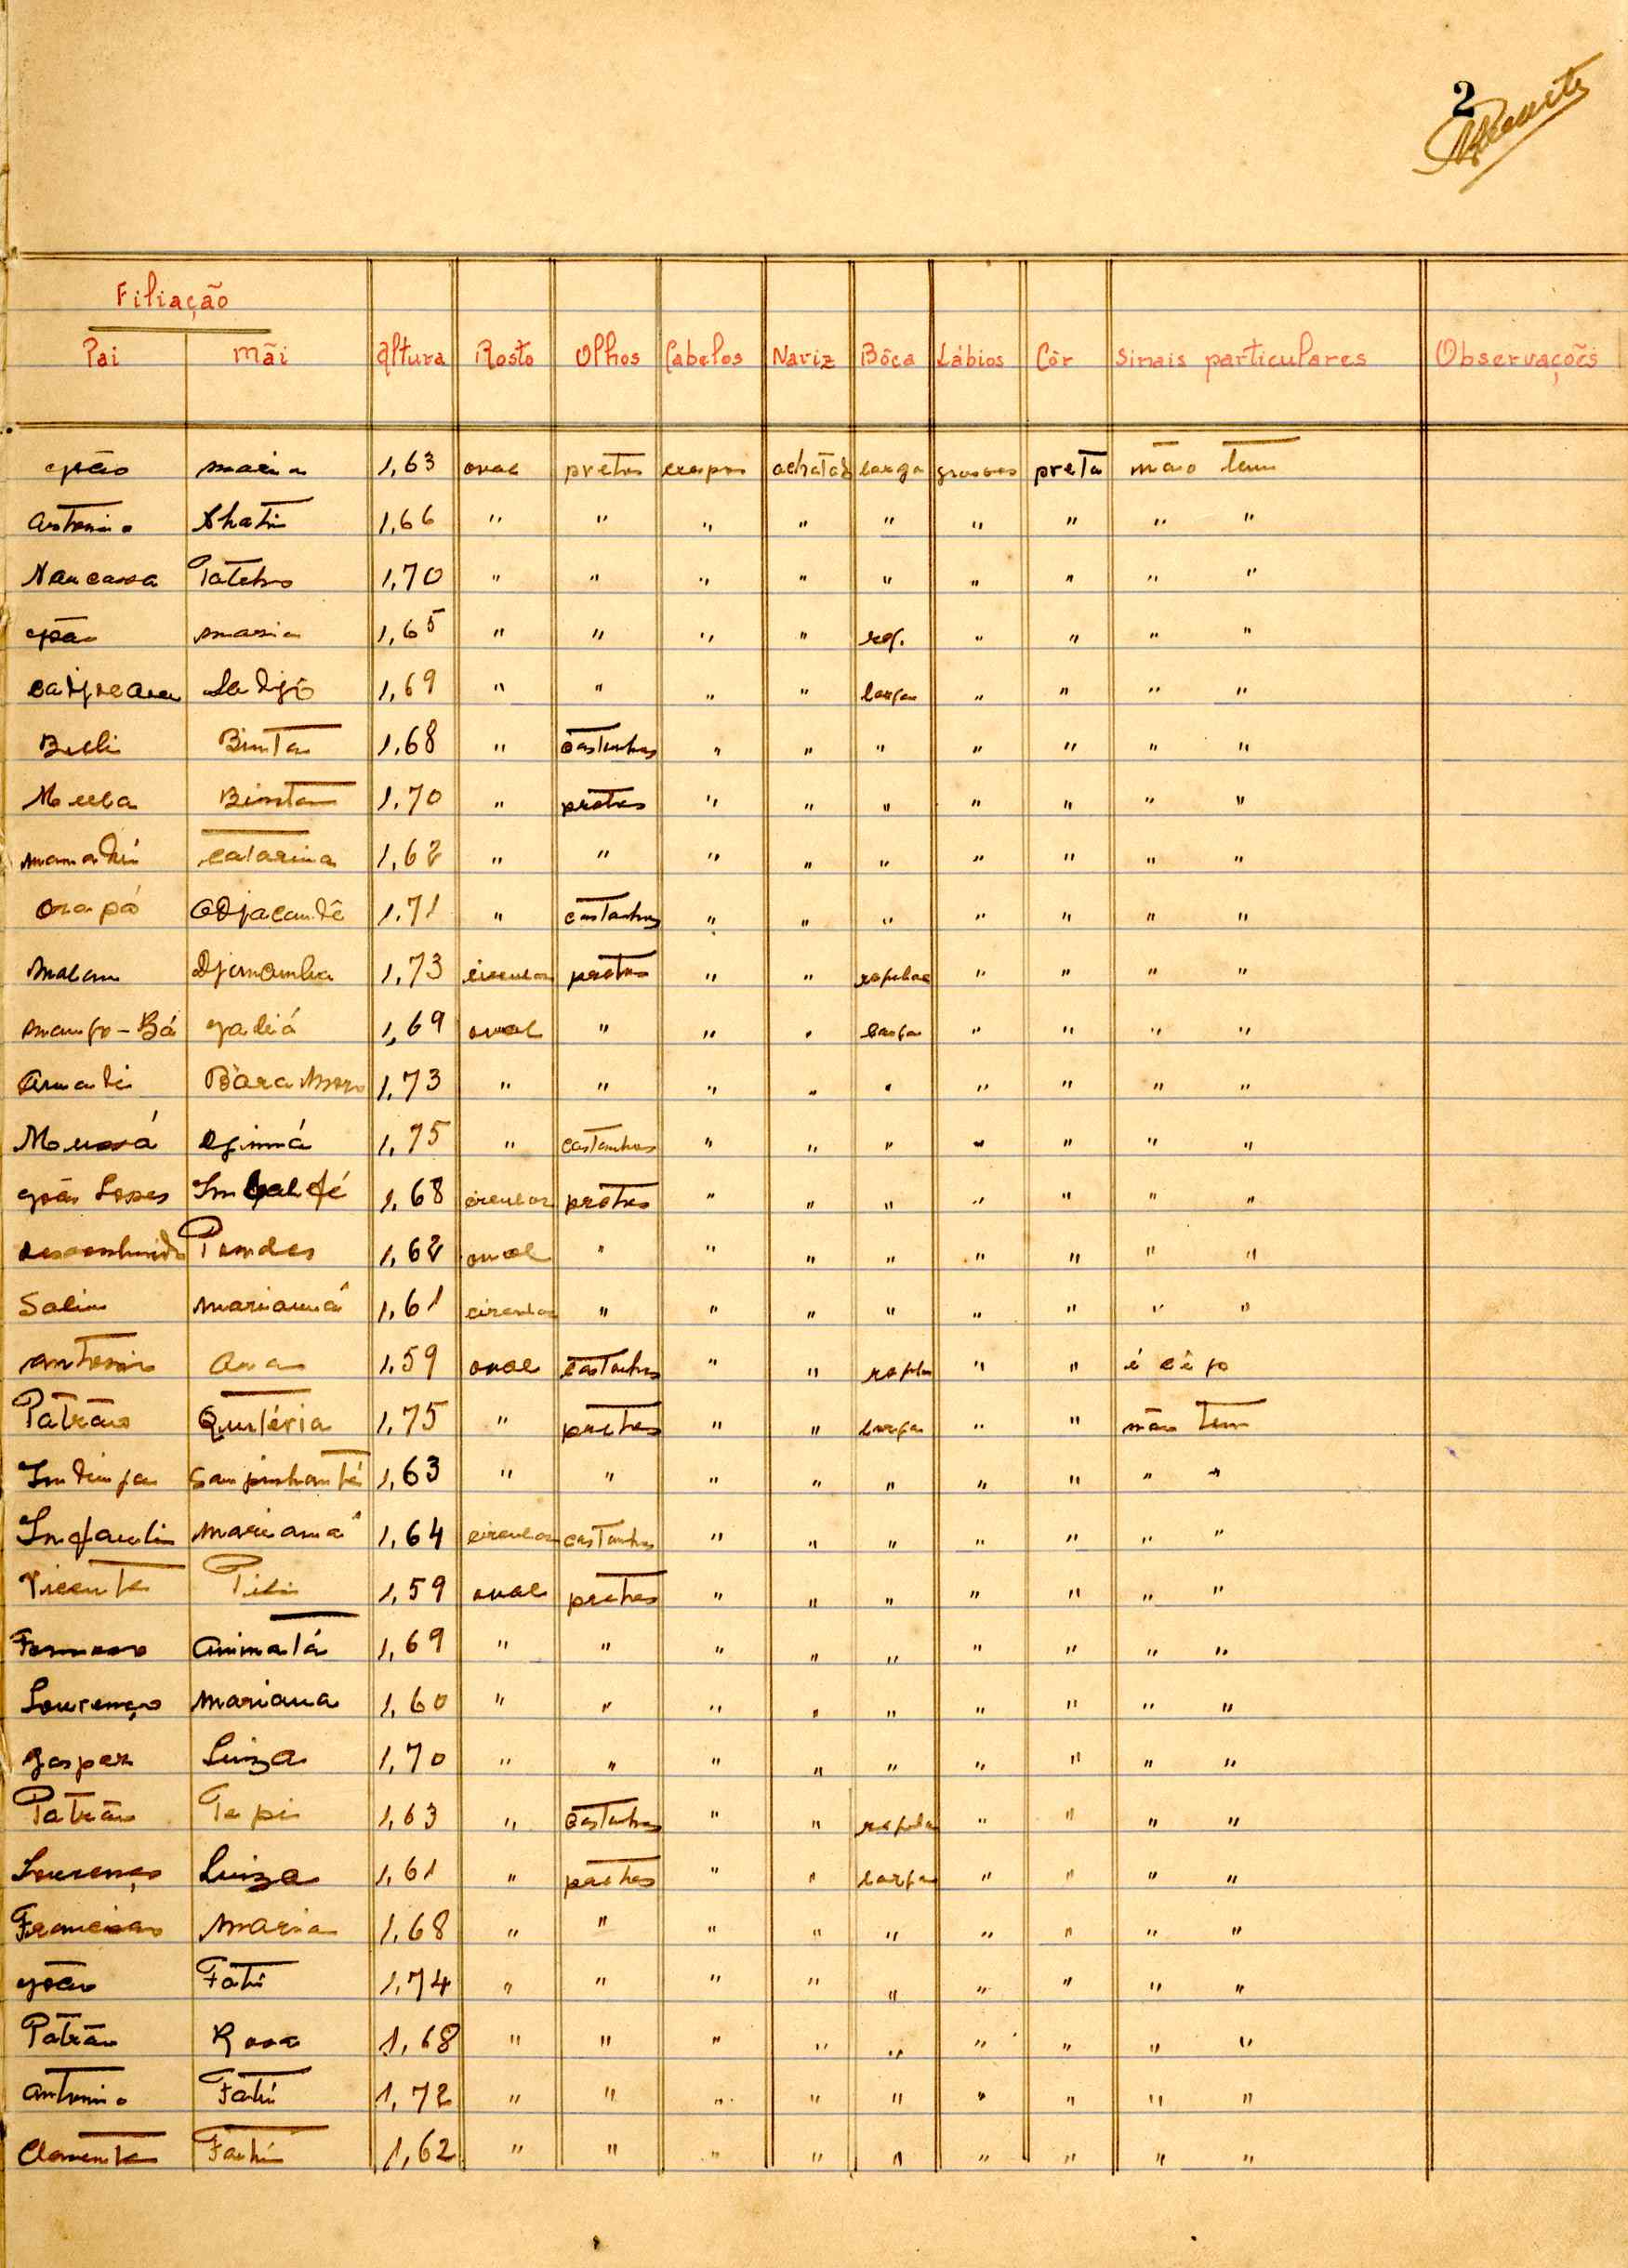 2
Filiação
Pai Mãi Altura Rosto Olhos Cabelos Nariz Bôca Lábios Côr Sinais particulares Observações
João Maria 1,63 oval pretos crespos achatado larga grossos preta não tem
Antonio 1,66 " " " " " " " " "
1,70 " " " " " " " " "
João Maria 1,65 " " " " reg. " " " "
1,69 " " " " larga " " " "
Binta 1,68 " castanhos " " " " " " "
Binta 1,70 " pretos " " " " " " "
Mamadú Catarina 1,62 " " " " " " " " "
Orapó Adjacandê 1,71 " castanhos " " " " " " "
Malam 1,73 circular pretos " " regular " " " "
1,69 oval " " " larga " " " "
1,73 " " " " " " " " "
Mussá Djinná 1,75 " castanhos " " " " " " "
João Lopes 1,68 circular pretos " " " " " " "
desconhecido 1,62 oval " " " " " " " "
Salim 1,61 circular " " " " " " " "
Antonio Ana 1,59 oval castanhos " " regular " " é cégo
Patrão Quitéria 1,75 " pretos " " larga " " não tem
1,63 " " " " " " " " "
1,64 circular castanhos " " " " " " "
Vicente 1,59 oval pretos " " " " " " "
1,69 " " " " " " " " "
Lourenço Mariana 1,60 " " " " " " " " "
Gaspar Luiza 1,70 " " " " " " " " "
Patrão 1,63 " castanhos " " regular " " " "
Lourenço Luiza 1,61 " pretos " " larga " " " "
Francisco Maria 1,68 " " " " " " " " "
João Fatú 1,74 " " " " " " " " "
Patrão Rosa 1,68 " " " " " " " " "
Antonio Fatú 1,72 " " " " " " " " "
Clemente 1,62 " " " " " " " " "